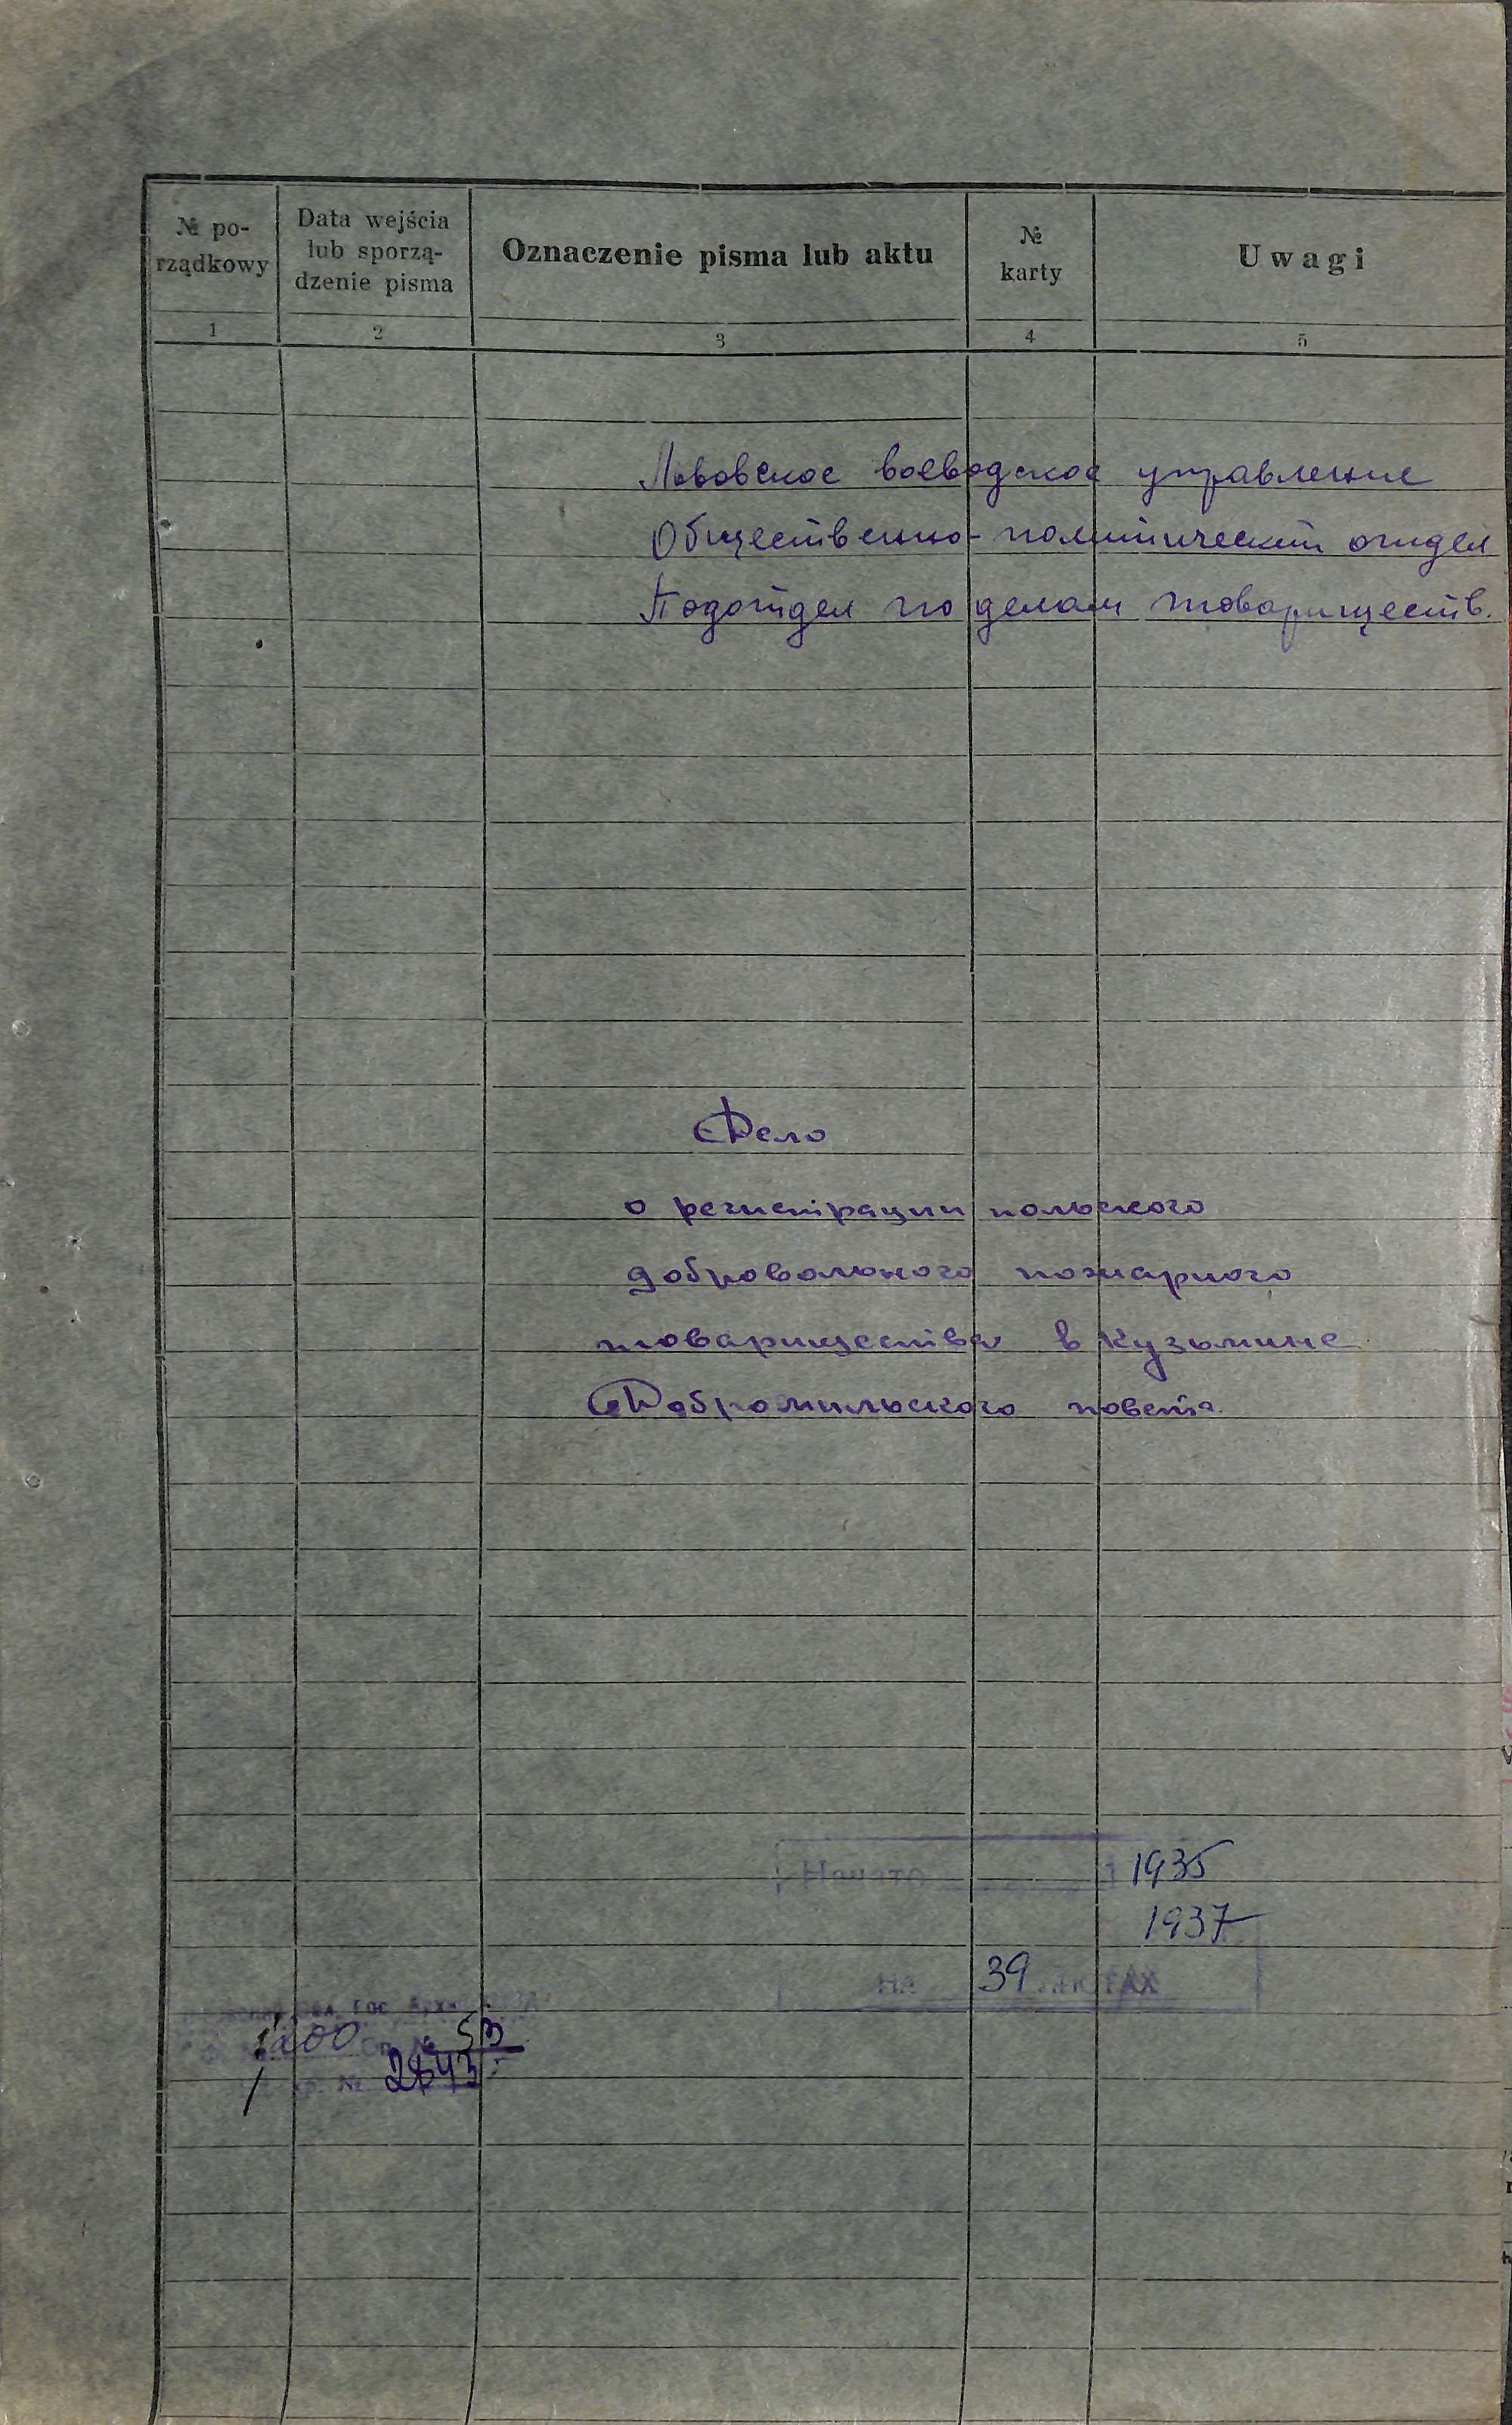 № po-
rządkowy
Data wejścia
lub sporzą-
dzenie pisma
Oznaczenie pisma lub aktu
№
karty
Uwagi
1 2 3 4 5
Львовское воеводское управление
Общественно-политический отдел
Подотдел по делам товариществ.
Дело
о регистрации польского
добровольного пожарного
товарищества в Кузьмине
Добромильского повета.
Начато 1935
1937
На 39 листах
обл. гос. архив
1200 Оп. № 53
хр. № 2843